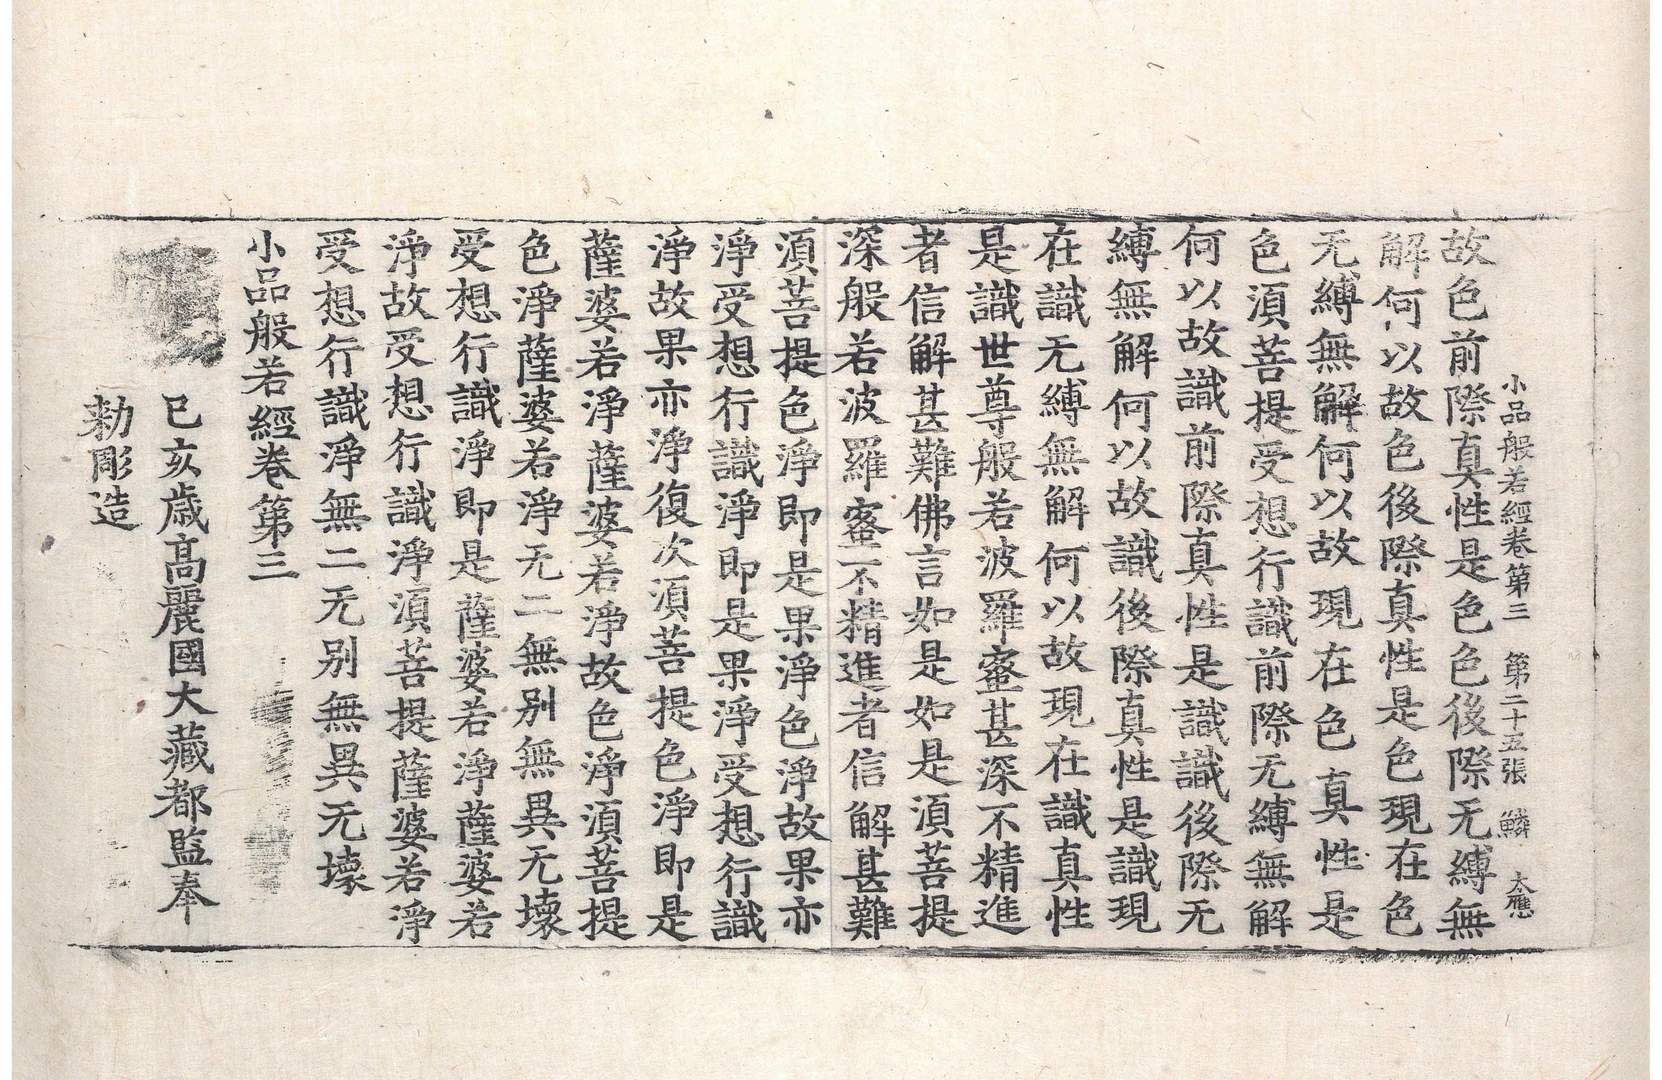 小品般若經卷第三 第二十五張 鱗 大應
故色前際真性是色色後際无縛無
解何以故色後際真性是色現在色
无縛無解何以故現在色真性是
色湏菩提受想行識前際无縛無解
何以故識前際真性是識識後際无
縛無解何以故識後際真性是識現
在識无縛無解何以故現在識真性
是識世尊般若波羅蜜甚深不精進
者信解甚難佛言如是如是湏菩提
深般若波羅蜜不精進者信解甚難
湏菩提色淨即是果淨色淨故果亦
淨受想行識淨即是果淨受想行識
淨故果亦淨復次湏菩提色淨即是
薩婆若淨薩婆若淨故色淨湏菩提
色淨薩婆若淨无二無別無異无壞
受想行識淨即是薩婆若淨薩婆若
淨故受想行識淨湏菩提薩婆若淨
受想行識淨無二无別無異无壞
小品般若經卷第三
己亥歲高麗國大藏都監奉
勅彫造